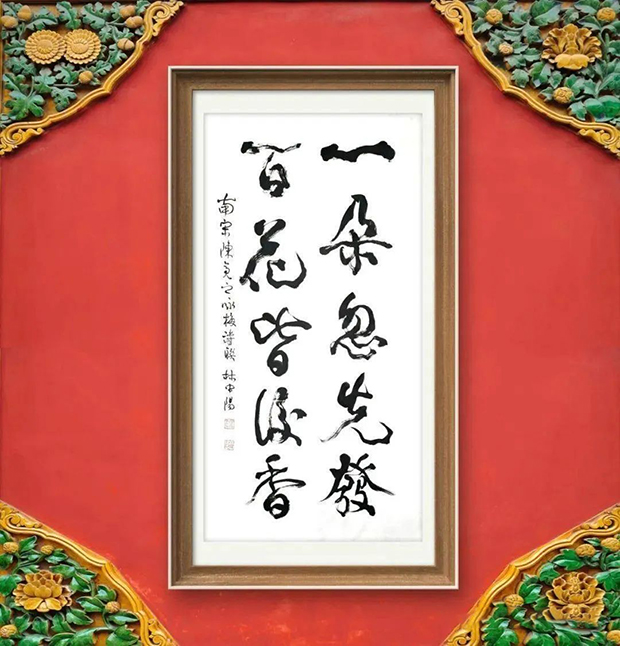 一朵忽先發
百花皆後香
南宋陳亮之咏梅詩聯 林中陽